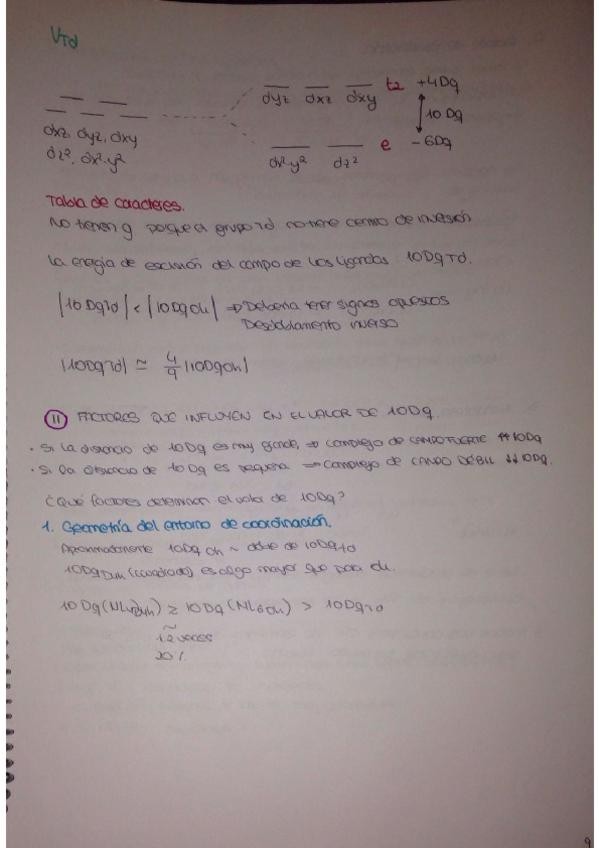 VTd
dyz dxz dxy t2 +4Dq
10 Dq
dxz, dyz, dxy
dz², dx²-y²
dx²-y² dz² e -6Dq
Tabla de caracteres.
No tienen g porque el grupo Td no tiene centro de inversión
La energía de escisión del campo de los ligandos 10DqTd.
|10DqTd| < |10DqOh| ⇒ Debería tener signos opuestos
Desdoblamiento inverso
|10DqTd| ≃ 4/9 |10DqOh|
II FACTORES QUE INFLUYEN EN EL VALOR DE 10Dq
· Si la distancia de 10Dq es muy grande, ⇒ complejo de CAMPO FUERTE ↑↑ 10Dq
· Si la distancia de 10Dq es pequeña ⇒ complejo de CAMPO DÉBIL ↓↓ 10Dq.
¿Qué factores determinan el valor de 10Dq?
1. Geometría del entorno de coordinación.
10Dq Oh ~ doble de 10DqTd
10Dq D4h (cuadrado) es algo mayor que para Oh.
10Dq (ML4D4h) ≥ 10Dq (ML6Oh) > 10DqTd
~
1.2 veces
20%
9